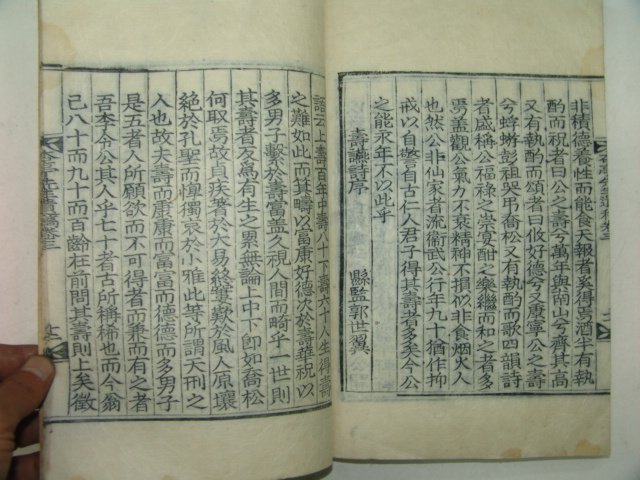 非積德養性而能食天報者奚得焉酒半有執
酌而祝者曰公之壽兮萬年與南山兮齊其高
又有執酌而頌者曰攸好德兮又康寧公之壽
兮蜉蝣彭祖哭弔喬松又有執酌而歌四韻詩
者盛稱公福祿之崇宴酣之樂繼而和之者多
焉盖觀公氣力不衰精神不損似非食烟火人
也然公非仙家者流衛武公行年九十猶作抑
戒以自警自古仁人君子得其壽者多矣今公
之能永年不以此乎
壽讌詩序
縣監郭世翼
語云上壽百年中壽八十下壽六十人生得壽
之難如此而其疇以富康好德次於壽華祝以
多男子繫於壽富盖久視人間而畸乎一世則
其壽者反爲有生之累無論上中下卽如喬松
何取焉故自疾著於大易終窶歎於風人原壤
絶於孔聖而惸獨哀於小雅此等所謂天刑之
人也故夫壽而康康而富富而德德而多男子
是五者人所願欲而不可得者而兼而有之者
吾李令公其人乎七十者古所稱稀也而今翁
已八十而九十而百齡在前問其壽則上矣徵